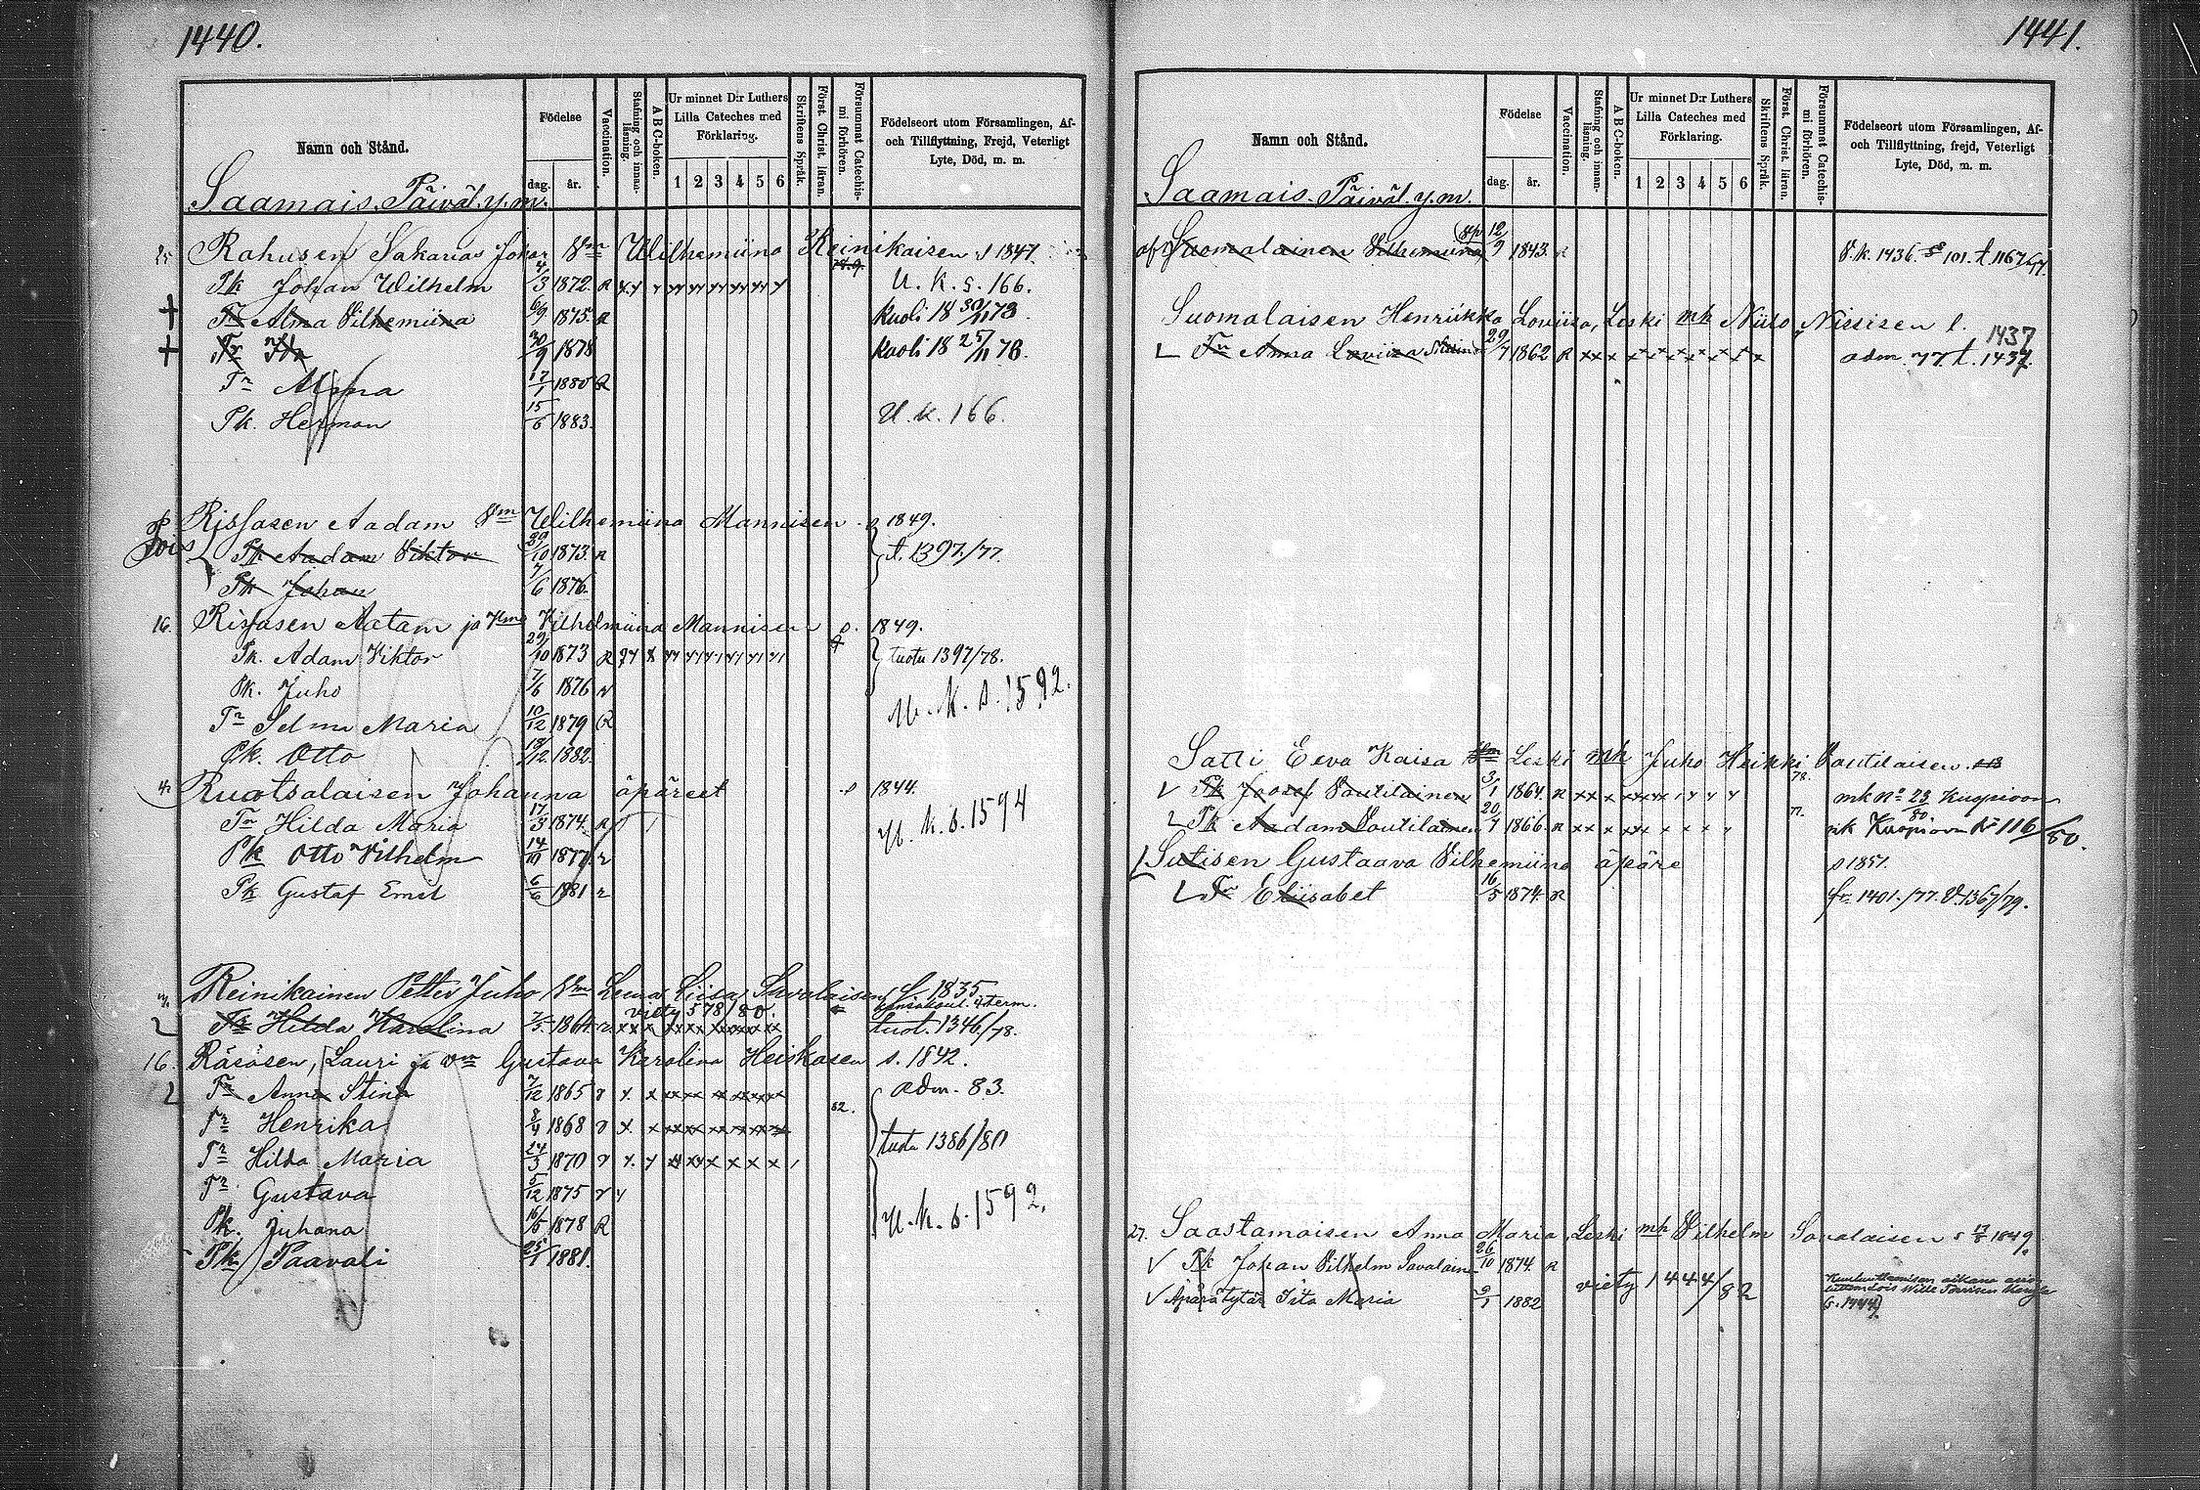 1440.
Namn och Stånd.
Födelse
dag.
år.
Vaccination.
Stafning och innan-läsning.
A B C-boken.
Ur minnet D:r Luthers
Lilla Cateches med
Förklaring.
1 2 3 4 5 6
Skriftens Språk.
Först. Christ. läran.
Försummat Catechis-mi förhören.
Födelseort utom Församlingen, Af-
och Tillflyttning, Frejd, Veterligt
Lyte, Död, m. m.
Saamais. Päiväl. y. m.
Rahusen Sakarias Johan Vm Wilhemiina Reinikaisen s 1847.
Pk Johan Wilhelm 4/3 1872. R U. k. s. 166.
Tr Alma Vilhemiina 6/9 1875. R Kuoli 18 30/11 78.
Tr Ida 30/9 1878 Kuoli 18 25/11 78.
Tr Alma 17/1 1880 R
Pk. Herman 15/6 1883. U. k. 166.
Rissasen Aadam Vm Wilhemiina Mannisen s 1849.
pois
Pk Aadam Viktor 29/10 1873. R t. 1397./77.
Pk Johan 7/6 1876.
16. Rissasen Aatam ja Vmo Vilhelmiina Mannisen s. 1849.
Pk. Adam Viktor 29/10 1873 R tuotu 1397/78.
Pk. Juho 7/6 1876 r
U. k. s. 1592.
Tr Selma Maria 10/12 1879 R
Pk. Otto 19/12 1882.
Ruotsalaisen Johanna äpäreet s 1844.
Tr Hilda Maria 17/3 1874. R U. k. s. 1594
Pk Otto Vilhelm 14/10 1877. r
Pk Gustaf Emil 6/6 1881 r
Reinikainen Petter Juho Vm Leena Liisa Savolaisen s 1835
viety 578/80.
Tr Hilda Karolina 7/5 1864. r tuot. 1346./78.
16. Räsäsen, Lauri ja vm Gustava Karolina Heiskasen s. 1842.
Tr Anna Stina 7/12 1865 adm. 83.
Tr Henrika 8/4 1868 82.
Tr Hilda Maria 24/3 1870 tuotu 1386/80
Tr Gustava 5/12 1875
Pk. Juhana 16/5 1878 R U. k. s. 1592.
Pk Paavali 25/1 1881.
1441.
Namn och Stånd.
Födelse
dag.
år.
Vaccination.
Stafning och innan-läsning.
A B C-boken.
Ur minnet D:r Luthers
Lilla Cateches med
Förklaring.
1 2 3 4 5 6
Skriftens Språk.
Först. Christ. läran.
Försummat Catechis-mi förhören.
Födelseort utom Församlingen, Af-
och Tillflyttning, frejd, Veterligt
Lyte, Död, m. m.
Saamais. Päiväl. y. m.
Suomalainen Vilhemiina 12/9 1843. R V. k. 1436. s 101. t. 1167/77.
Suomalaisen Henriikka Loviisa, Leski mh Niilo Nissisen l.
1437
Tr Anna Loviisa 29/7 1862 R adm. 77. t. 1437.
Satti Eeva Kaisa Leski mh Juho Heikki Voutilaisen.
Pk Joosef Voutilainen 3/1 1864. R mk No 23/80 Kuopioon
Pk Aadam Voutilainen 20/7 1866. R mk Kuopioon No 116/80.
Sutisen Gustaava Vilhemiina äpäre s 1851.
Tr Eliisabet 16/5 1874. R fr. 1401./77. V. 1367/79.
27. Saastamoisen Anna Maria, Leski mh Vilhelm Savolaisen s 17/8 1849.
Pk Johan Vilhelm Savolain 26/10 1874. R
Äpärätytär Iita Maria 9/1 1882 viety 1444/82